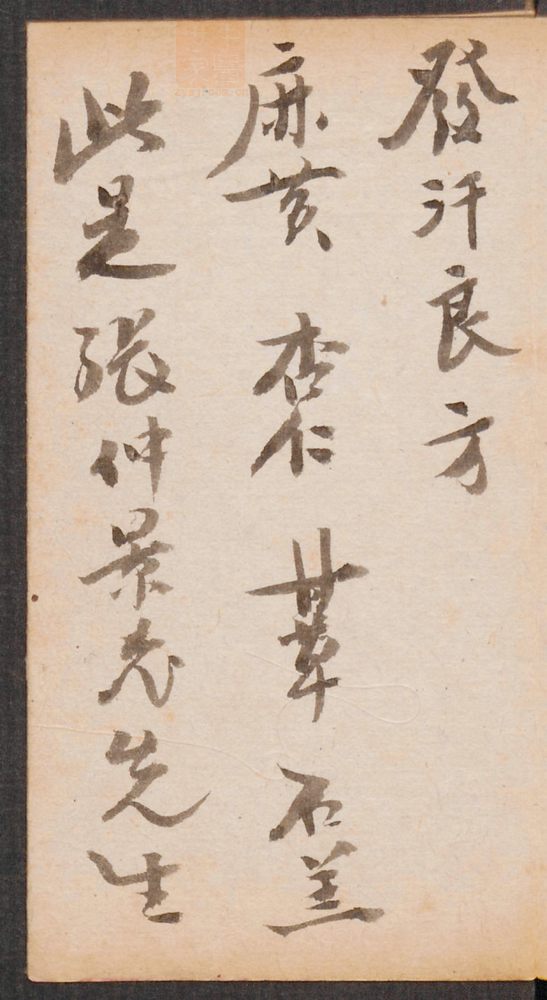 發汗良方
麻黄 杏仁 甘草 石羔
此是張仲景老先生